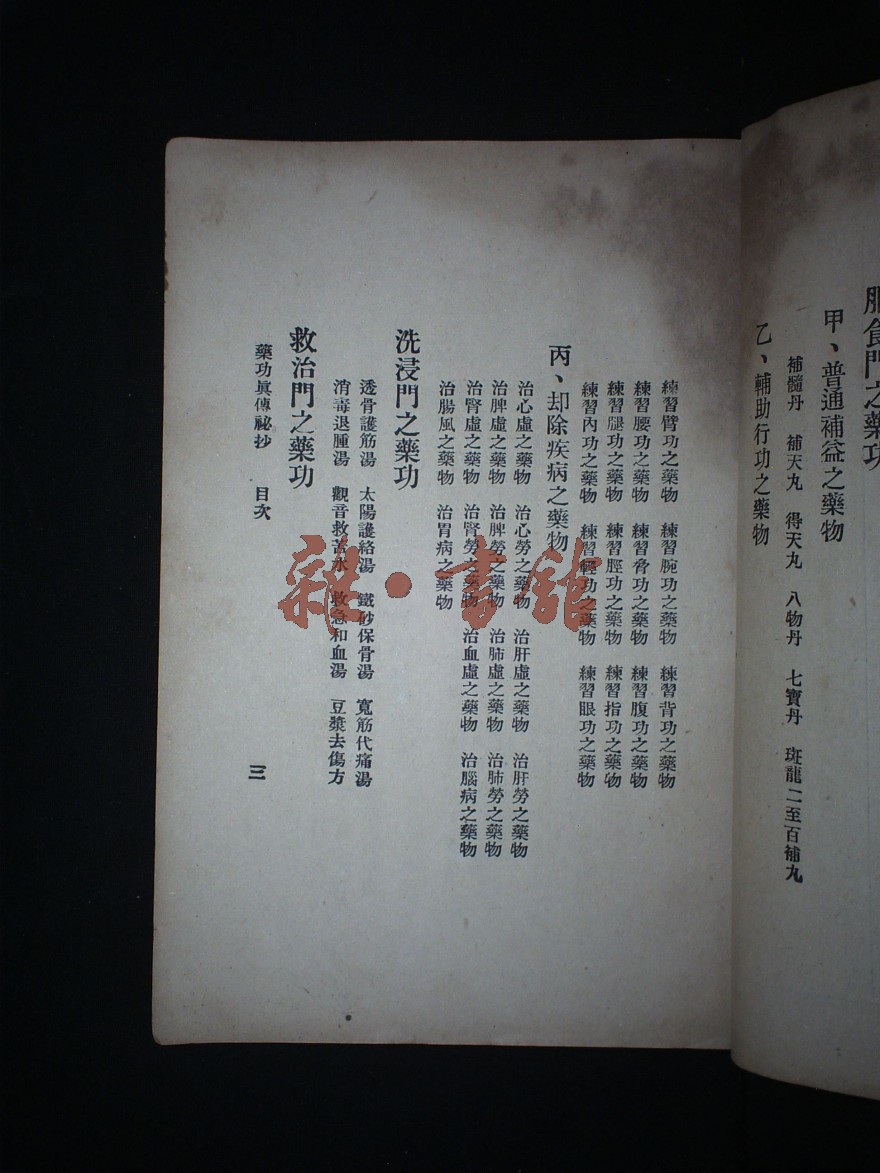 服食門之藥功
甲、普通補益之藥物
補髓丹　補天丸　得天丸　八物丹　七寶丹　斑龍二至百補丸
乙、輔助行功之藥物
練習臂功之藥物　練習腕功之藥物　練習背功之藥物
練習腰功之藥物　練習脅功之藥物　練習腹功之藥物
練習腿功之藥物　練習脛功之藥物　練習指功之藥物
練習內功之藥物　練習輕功之藥物　練習眼功之藥物
丙、却除疾病之藥物
治心虛之藥物　治心勞之藥物　治肝虛之藥物　治肝勞之藥物
治脾虛之藥物　治脾勞之藥物　治肺虛之藥物　治肺勞之藥物
治腎虛之藥物　治腎勞之藥物　治血虛之藥物　治腦病之藥物
治腸風之藥物　治胃病之藥物
洗浸門之藥功
透骨護筋湯　太陽護絡湯　鐵砂保骨湯　寬筋代痛湯
消毒退腫湯　觀音救苦水　救急和血湯　豆漿去傷方
救治門之藥功
藥功眞傳祕抄　目次　三
雜·書館